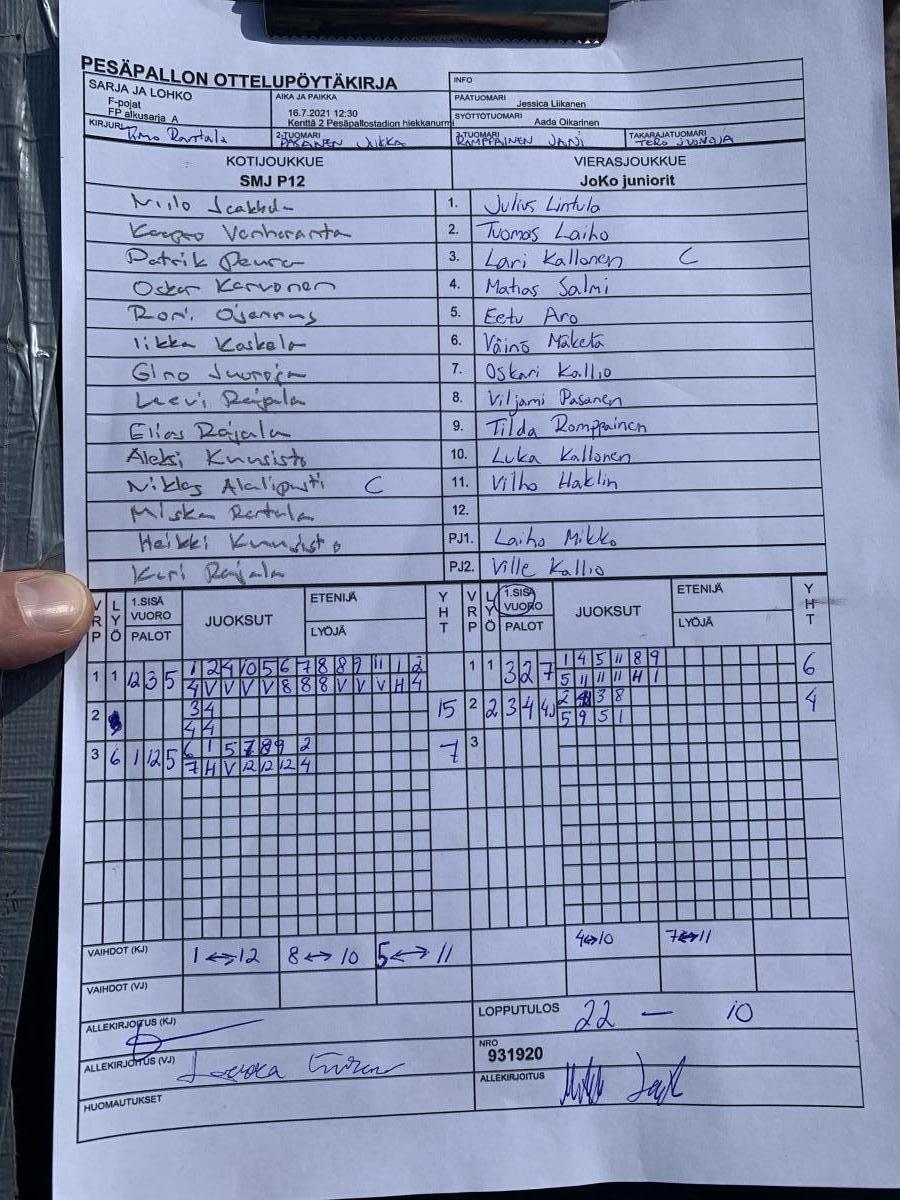 PESÄPALLON OTTELUPÖYTÄKIRJA
SARJA JA LOHKO
F-pojat
FP alkusarja A
AIKA JA PAIKKA
16.7.2021 12:30
Kenttä 2 Pesäpallostadion hiekkanurmi
INFO
PÄÄTUOMARI Jessica Liikanen
SYÖTTÖTUOMARI Aada Oikarinen
KIRJURI Timo Rantala
2-TUOMARI PASANEN JUKKA
3-TUOMARI ROMPPAINEN JANI
TAKARAJATUOMARI TERO JUONOJA
KOTIJOUKKUE VIERASJOUKKUE
SMJ P12 JoKo juniorit
Niilo 1. Julius Lintula
2. Tuomas Laiho
Patrik Peura 3. Lari Kallonen C
Oskar Karvonen 4. Matias Salmi
5. Eetu Aro
Iikka Koskela 6. Väinö Mäkelä
Gino Juonoja 7. Oskari Kallio
Leevi Rajala 8. Viljami Pasanen
Elias Rajala 9. Tilda Romppainen
Aleksi Kuusisto 10. Luka Kallonen
Niklas C 11. Vilho Haklin
Miska Rantala 12.
Heikki Kuusisto PJ1. Laiho Mikko
Rajala PJ2. Ville Kallio
VRP LYÖ 1.SISÄ VUORO PALOT JUOKSUT ETENIJÄ LYÖJÄ YHT VRP LYÖ 1.SISÄ VUORO PALOT JUOKSUT ETENIJÄ LYÖJÄ YHT
1 1 12 3 5 1 2 4 10 5 6 7 8 8 9 11 1 2 1 1 3 2 7 1 4 5 11 8 9 6
4 V V V V 8 8 8 V V H 4 5 11 11 11 H 1
2 3 4 15 2 2 3 4 2 3 8 4
4 4 5 9 5 1
3 6 1 12 5 6 1 5 7 8 9 2 7 3
7 H V 12 12 12 4
VAIHDOT (KJ) 1 ↔ 12 8 ↔ 10 5 ↔ 11 4↔10 7↔11
VAIHDOT (VJ)
ALLEKIRJOITUS (KJ) LOPPUTULOS 22 — 10
ALLEKIRJOITUS (VJ) NRO
931920
HUOMAUTUKSET ALLEKIRJOITUS